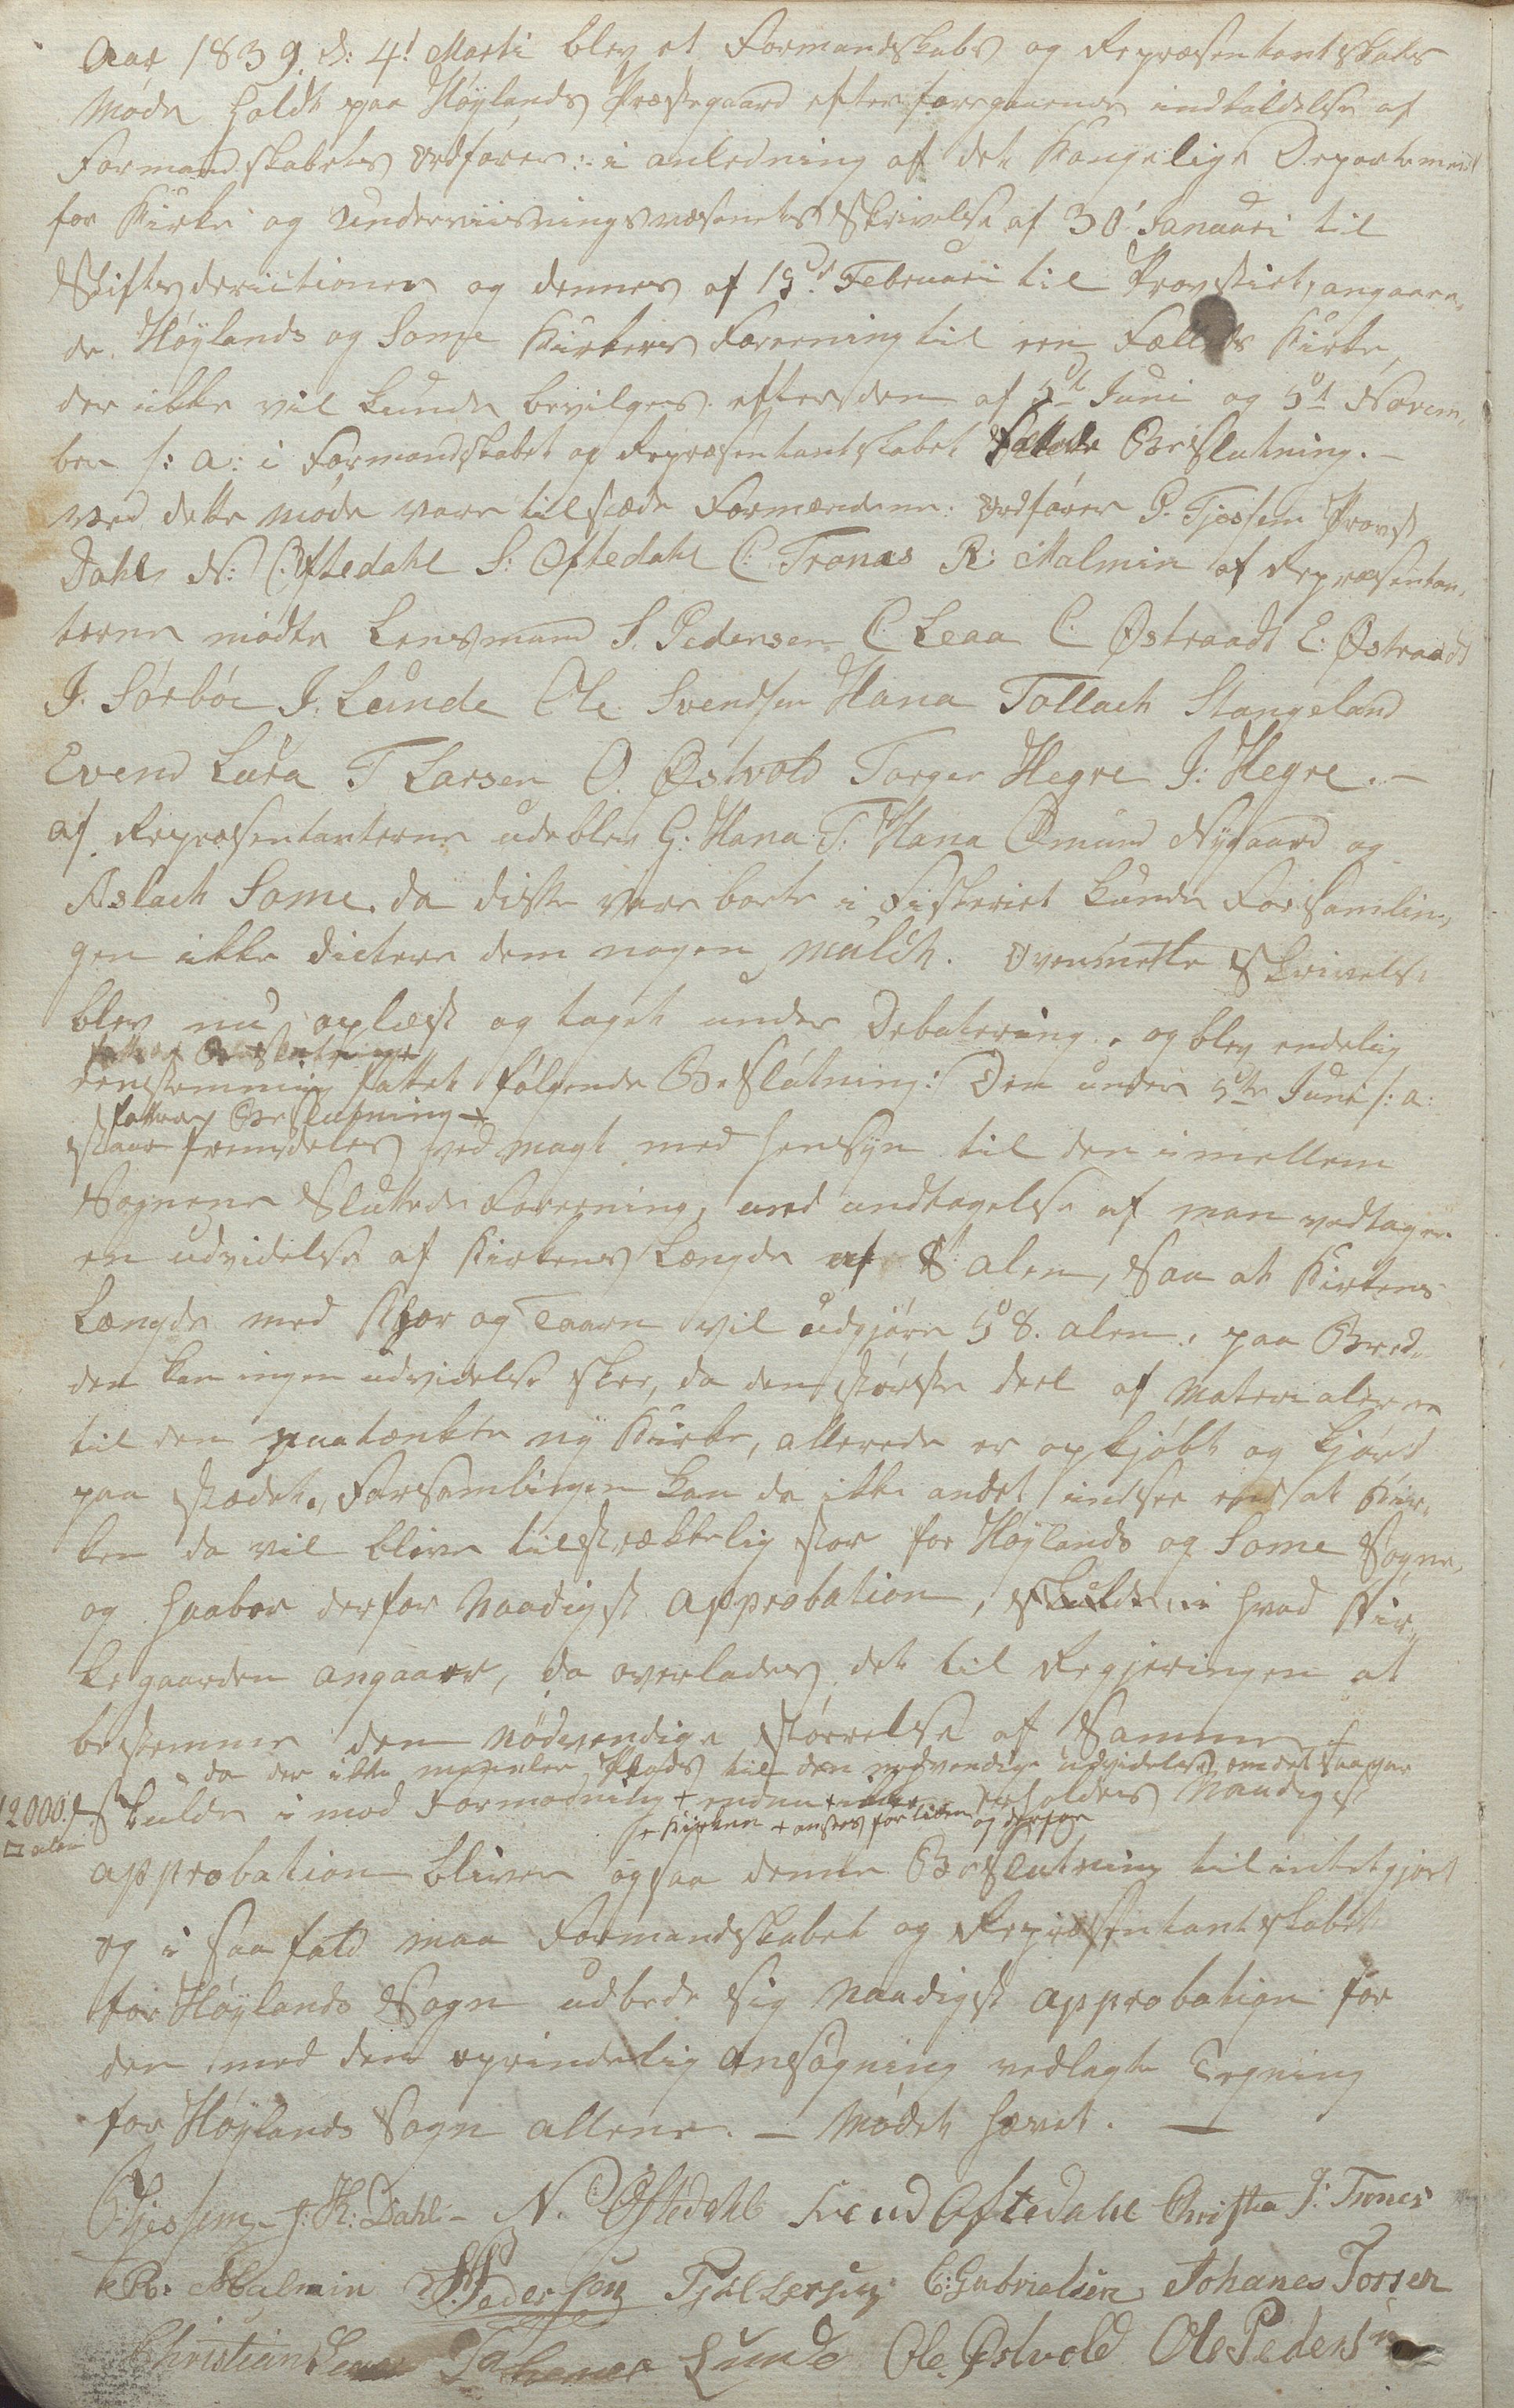 Aar 1839. d: 4d Marti blev et Formandskabs og Repræsentantskabs
Møde holdt paa Høylands Præstegaard efter foregaaende indkaldelse af
Formandskabets Ordfører: i anledning af det Kongelige Departement
for Kirke og Underviisningsvæsenets Skrivelse af 30 Januari til
Stiftsdirictionen og dennes af 19de Februari til Provstiet, angaaen-
de Høylands og Some Kirkers Foreening til een Fælleds Kirke,
der ikke vil kunde bevilges efter den af 5te Juni og 5te Novem-
ber f: a: i Formandskabet og Repræsentantskabet fattede Beslutning. -
Ved dette møde vare tilstæde Formændene: Ordfører P. Tjessem Provst
Dahl N: Oftedahl S: Oftedahl C: Tronæs R: Malmin af Repræsentan-
terne mødte Lensmand S. Pedersen C Leaa C. Østraadt E. Østraadt
J. Sørbøe J. Lunde Ole Svendsen Hana Tollach Stangeland
Evend Lura T Larsen O. Østvold Torger Hegre J: Hegre. -
af Repræsentanterne udeblev G: Hana T: Hana Omund Nygaard og
Aslach Some. da disse vare borte i Fiskeriet kunde Forsamlin-
gen ikke dictere dem nogen mulct. Ovenmelte Skrivelse
blev nu oplæst og taget under Debatering, og blev endelig
eenstemmig fattet følgende Beslutning: Den under 5te Juni f: a:
fattede Beslutning
staar fremdeles ved magt med hensyn til den imellem
Sognene Sluttede Foreening, med undtagelse af man vedtager
en udvidelse af Kirkens Længde af 8 alen, saa at Kirkens
Længde med Chor og Taarn vil udgjøre 58. alen. paa Bred-
den kan ingen udvidelse skee, da den største deel af Materialerne
til den paatænkte ny Kirke, allerede er opkjøbt og kjørd
paa stædet. Forsamlingen kan da ikke andet indsee end at Kir-
ken da vil blive tilstrækkelig stor for Høylands og Some Sogne,
og haaber derfor Naadigst approbation, hvad Kir-
kegaarden angaaer, da overlades det til Regjeringen at
bestemme den nødvendige størrelse af Samme +
da der ikke mangler Plads til den nødvendige udvidelse om det saa var
12000
□ alen
Skulde imod Formodning + endnu erholdes Naadigst
+ Kirken + ansees for liden og derfor
approbation bliver ogsaa denne Beslutning tilintetgjort
og i saa fald maa Formandskabet og Repræsentantskabet
for Høylands Sogn udbede sig Naadigst approbation for
den med den oprindelig ansøgning vedlagte Tegning
for Høylands Sogn allene. - Mødet hævet. -
P. Tjessem J: K: Dahl - N. Oftedahl Svend Oftedahl Christen J: Trones
R: Malmin S. Pedersen C: Gabrielsen Johanes Torsen
Christian Leaa Lunde Ole Østvold Ole Pedersen